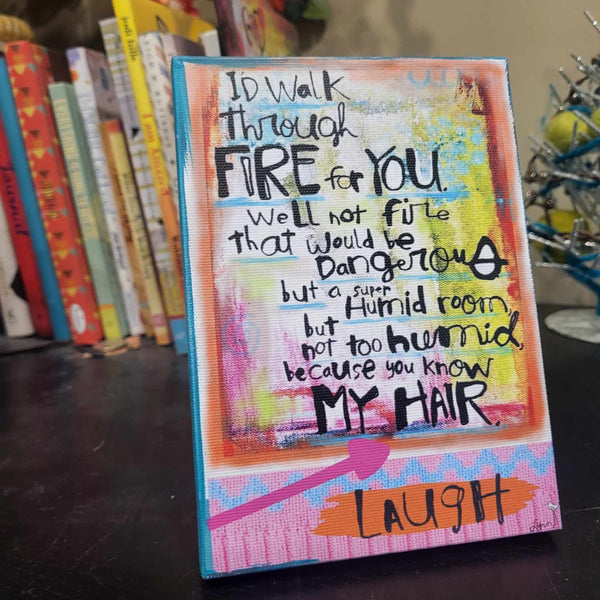 Jodi Hills
Journal
I'D WALK
THROUGH
FIRE for YOU.
Well not fire
that would be
Dangerous
but a super
Humid room,
but
not too humid,
because you know
MY HAIR.
LAUGH
Lynn